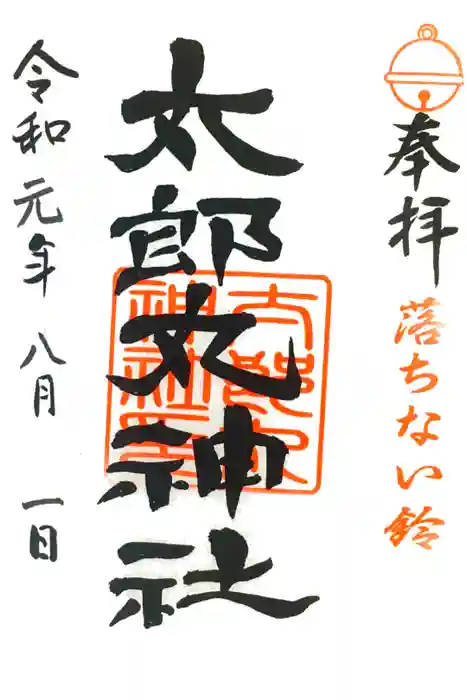 奉拝 落ちない鈴
太郎丸神社
令和元年八月一日